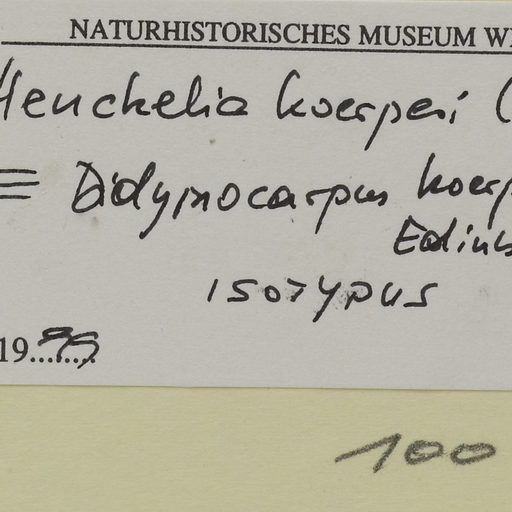 NATURHISTORISCHES MUSEUM WI
Henckelia koerperi (
≡ Didymocarpus koerp
Edinb
isotypus
1999
100